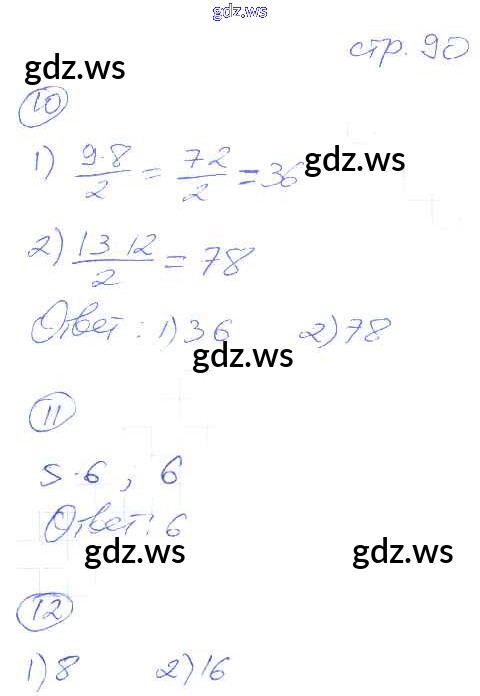 gdz.ws
стр. 90
gdz.ws
10
1) 9·8/2 = 72/2 = 36
gdz.ws
2) 13 12/2 = 78
Ответ: 1) 36 2) 78
gdz.ws
11
S·6; 6
Ответ: 6
gdz.ws gdz.ws
12
1) 8 2) 16